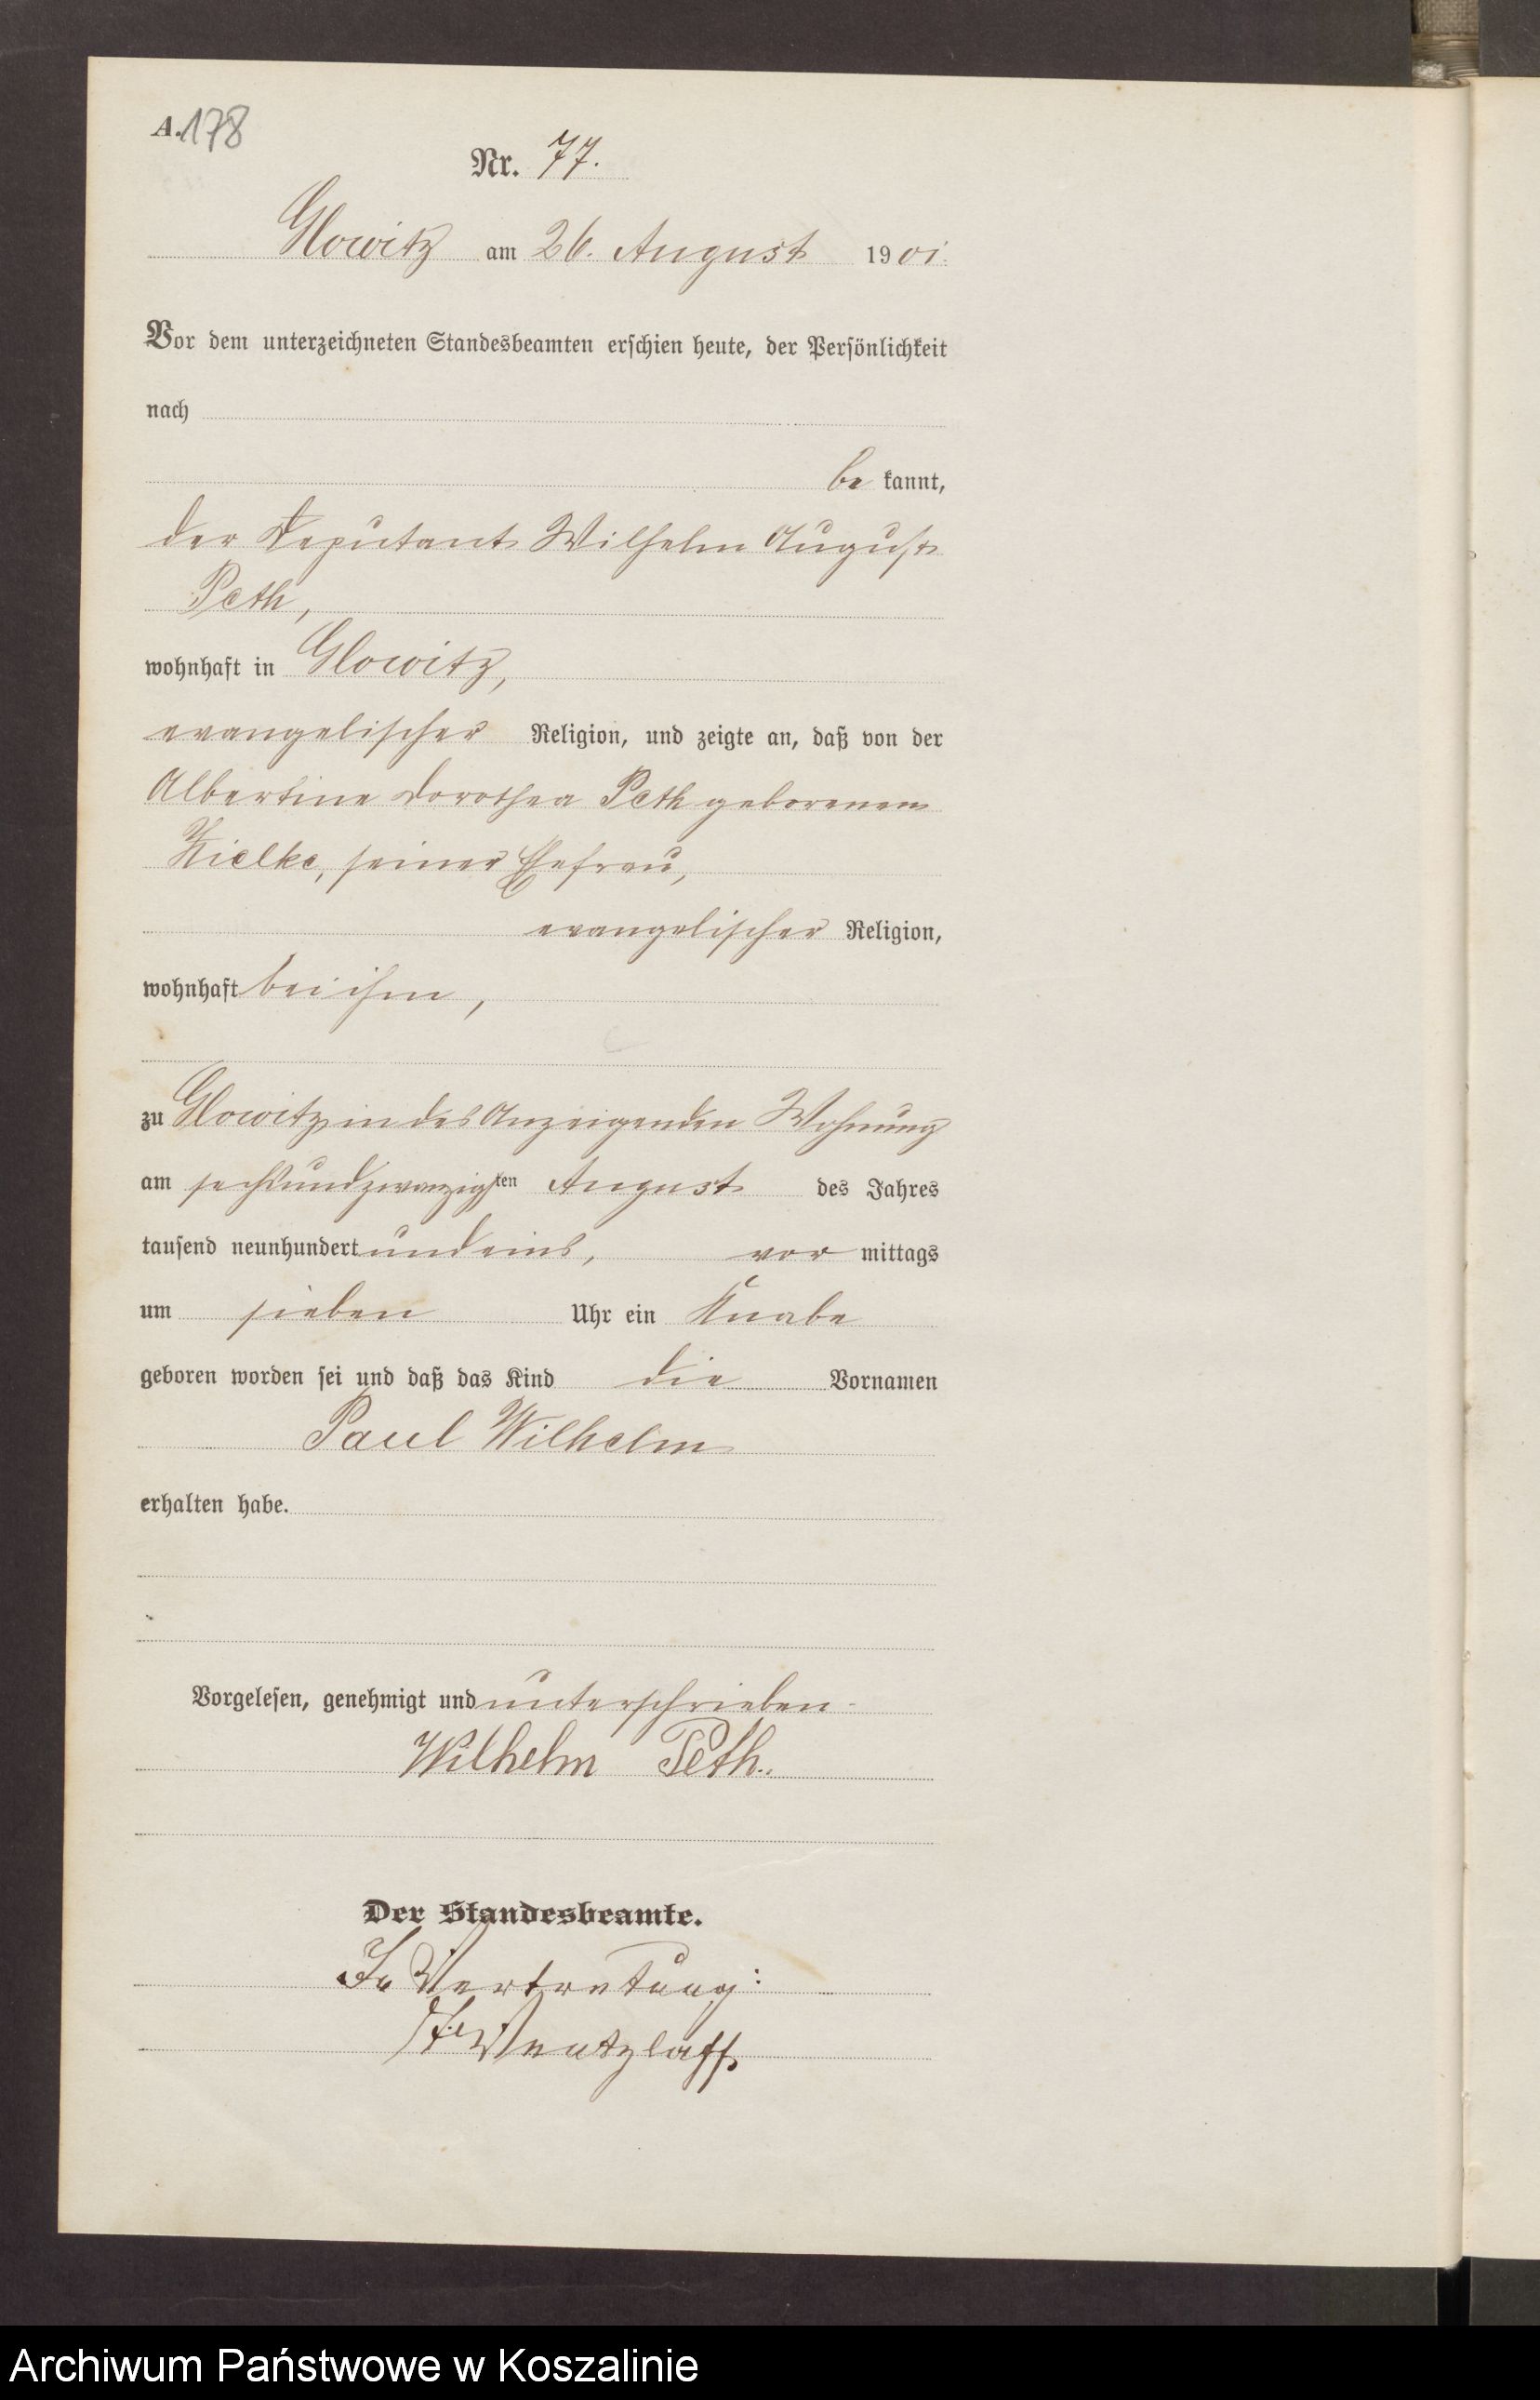 A. 178
Nr. 77.
Glowitz am 26. August 1901.
Vor dem unterzeichneten Standesbeamten erschien heute, der Persönlichkeit
nach
be kannt,
der Deputant Wilhelm August
Peth,
wohnhaft in Glowitz,
evangelischer Religion, und zeigte an, daß von der
Albertine Dorothea Peth geborenen
Kielke, seiner Ehefrau,
evangelischer Religion,
wohnhaft bei ihm,
zu Glowitz in des Anzeigenden Wohnung
am sechsundzwanzigten August des Jahres
tausend neunhundert und eins, vor mittags
um sieben Uhr ein Knabe
geboren worden sei und daß das Kind die Vornamen
Paul Wilhelm
erhalten habe.
Vorgelesen, genehmigt und unterschrieben
Wilhelm Peth.
Der Standesbeamte.
In Vertretung:
Wentzlaff
Archiwum Państwowe w Koszalinie